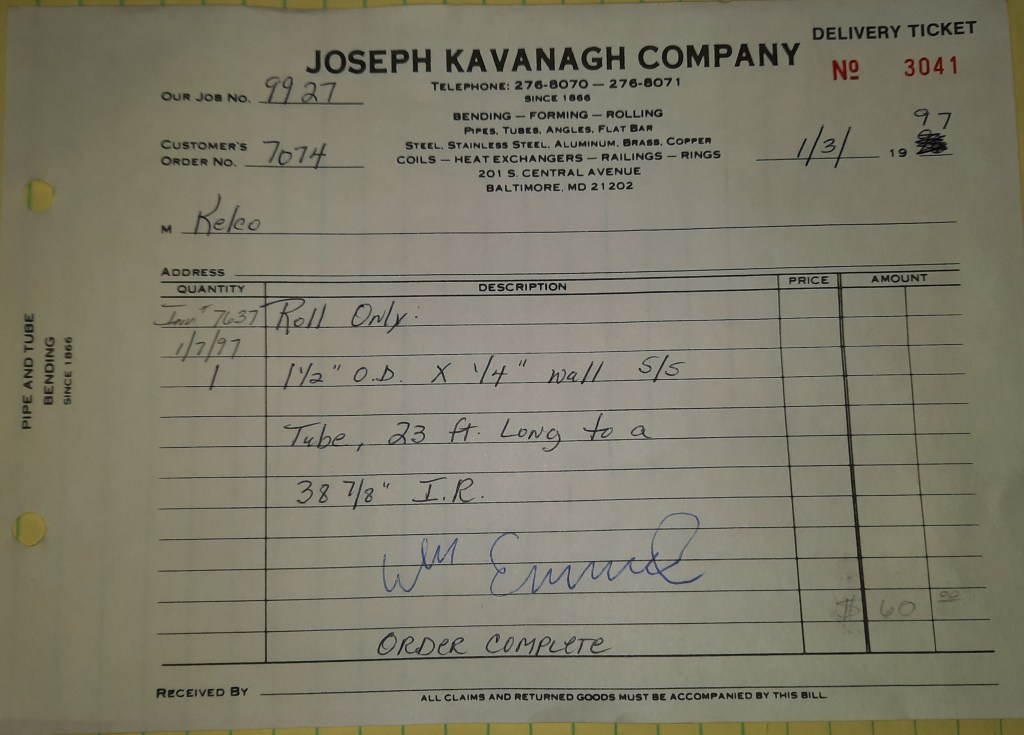 DELIVERY TICKET
JOSEPH KAVANAGH COMPANY
No 3041
TELEPHONE: 276-8070 — 276-8071
SINCE 1866
OUR JOB NO. 9927
BENDING — FORMING — ROLLING
PIPES, TUBES, ANGLES, FLAT BAR
STEEL, STAINLESS STEEL, ALUMINUM, BRASS, COPPER
COILS — HEAT EXCHANGERS — RAILINGS — RINGS
201 S. CENTRAL AVENUE
BALTIMORE, MD 21202
CUSTOMER'S
ORDER NO. 7074
1/3/ 19 97
M Kelco
ADDRESS
QUANTITY DESCRIPTION PRICE AMOUNT
Inv# 7637 Roll Only:
1/7/97
1 1 1/2" O.D. X 1/4" wall S/S
Tube, 23 ft. Long to a
38 7/8" I.R.
Wm
$ 60 00
ORDER COMPLETE
RECEIVED BY
ALL CLAIMS AND RETURNED GOODS MUST BE ACCOMPANIED BY THIS BILL
PIPE AND TUBE
BENDING
SINCE 1866